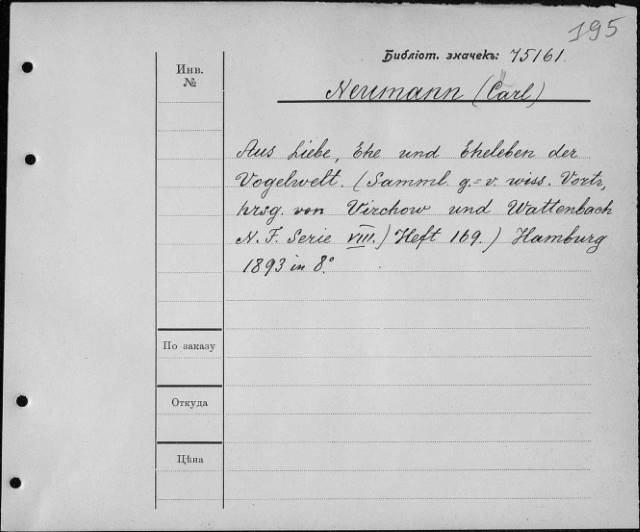 195
Библіот. значекъ: 75161.
Инв.
№
Neumann (Carl)
Aus Liebe, Ehe und Eheleben der
Vogelwelt. (Samml. g.=v. wiss. Vortr,
hrsg. von Virchow und Wattenbach
N. F. Serie VIII.) Heft 169.) Hamburg
1893 in 8.°
По заказу
Откуда
Цѣна